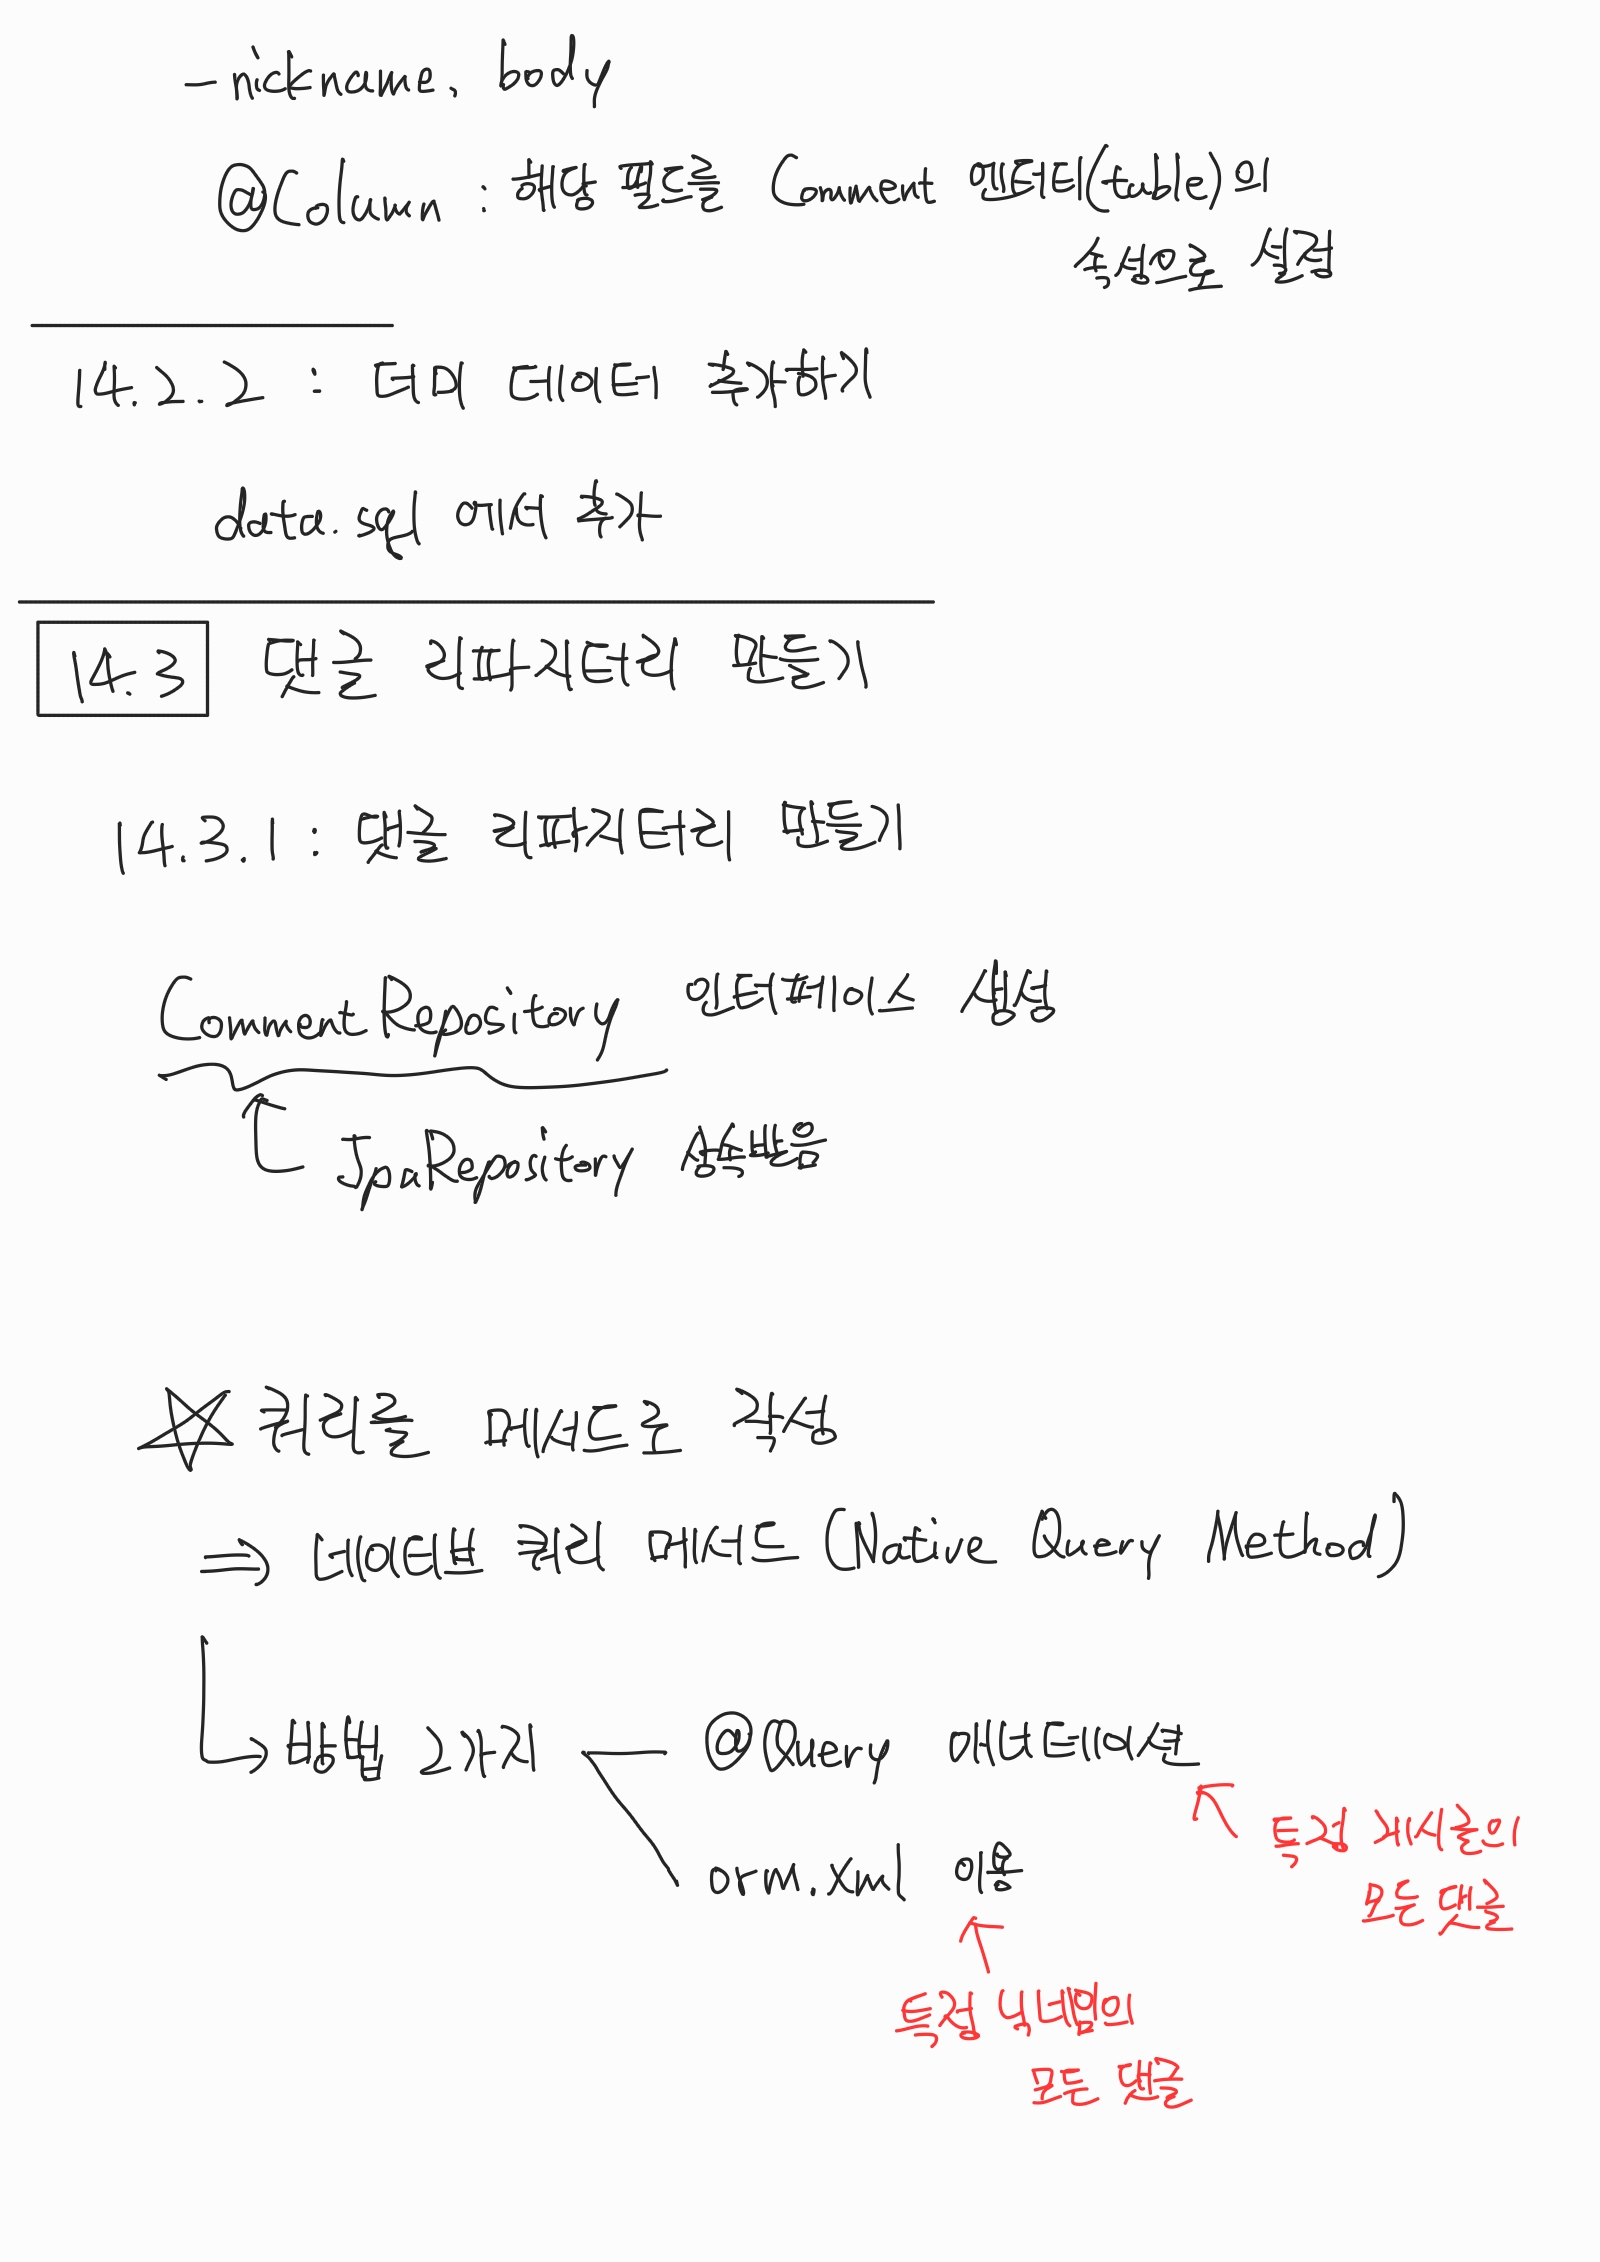 - nickname, body
@Column : 해당 필드를 Comment 엔터티(table)의
속성으로 설정
14.2.2 : 더미 데이터 추가하기
data.sql 에서 추가
14.3 댓글 리파지터리 만들기
14.3.1 : 댓글 리파지터리 만들기
CommentRepository 인터페이스 생성
JpaRepository 상속받음
☆ 쿼리를 메서드로 작성
⇒ 네이티브 쿼리 메서드 (Native Query Method)
→ 방법 2가지 @Query 애너테이션
특정 게시글의
orm.xml 이용
모든 댓글
특정 닉네임의
모든 댓글